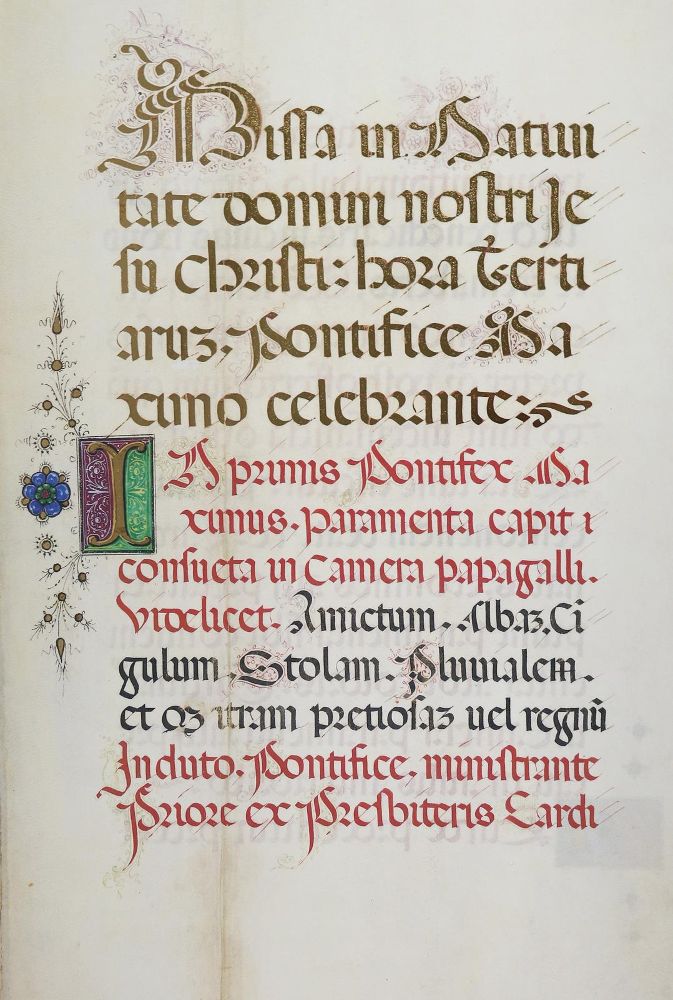 Missa in Natiui
tate domini nostri Je
su Christi: hora Terti
aruz. Pontifice Ma
ximo celebrante:
IN primis Pontifex Ma
ximus. paramenta capit i
consueta in Camera papagalli.
Videlicet. Amictum. Albaz. Ci
gulum. Stolam. Pluuialem.
et Mitram pretiosaz uel regnū
Induto. Pontifice. ministrante
Priore ex Presbiteris Cardi